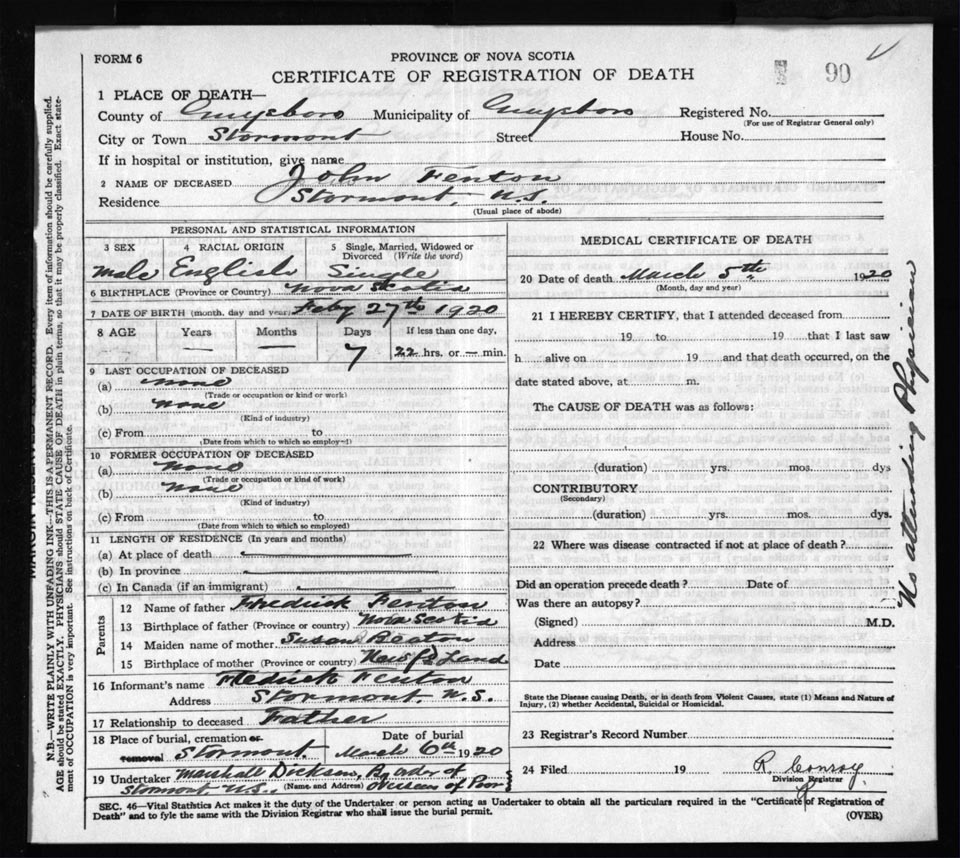 FORM 6
PROVINCE OF NOVA SCOTIA
CERTIFICATE OF REGISTRATION OF DEATH
90
1 PLACE OF DEATH—
County of Guysboro Municipality of Guysboro Registered No.
(For use of Registrar General only)
City or Town Stormont Street House No.
If in hospital or institution, give name
2 NAME OF DECEASED John Fenton
Residence Stormont, N.S.
(Usual place of abode)
PERSONAL AND STATISTICAL INFORMATION
3 SEX 4 RACIAL ORIGIN 5 Single, Married, Widowed or Divorced (Write the word)
Male English Single
6 BIRTHPLACE (Province or Country) Nova Scotia
7 DATE OF BIRTH (month, day and year) Feby 27th 1920
8 AGE Years Months Days If less than one day,
— — 7 22 hrs. or — min.
9 LAST OCCUPATION OF DECEASED
(a) None
(Trade or occupation or kind or work)
(b) None
(Kind of industry)
(c) From to
(Date from which to which so employ—)
10 FORMER OCCUPATION OF DECEASED
(a) None
(Trade or occupation or kind of work)
(b) None
(Kind of industry)
(c) From to
(Date from which to which so employed)
11 LENGTH OF RESIDENCE (In years and months)
(a) At place of death
(b) In province
(c) In Canada (if an immigrant)
Parents
12 Name of father Fredrick Fenton
13 Birthplace of father (Province or country) Nova Scotia
14 Maiden name of mother Susan Beaton
15 Birthplace of mother (Province or country) Newfd Land
16 Informant's name Fredrick Fenton
Address Stormont, N.S.
17 Relationship to deceased Father
18 Place of burial, cremation or removal Date of burial
Stormont. March 6th 1920
19 Undertaker Marshall Dickson, By order of
Stormont N.S. (Name and Address) Overseers of Poor
MEDICAL CERTIFICATE OF DEATH
20 Date of death March 5th 1920
(Month, day and year)
21 I HEREBY CERTIFY, that I attended deceased from
19 to 19 that I last saw
h alive on 19 and that death occurred, on the
date stated above, at m.
The CAUSE OF DEATH was as follows:
(duration) yrs. mos. dys
CONTRIBUTORY
(Secondary)
(duration) yrs. mos. dys.
22 Where was disease contracted if not at place of death?
Did an operation precede death? Date of
Was there an autopsy?
(Signed) M.D.
Address
Date
State the Disease causing Death, or in death from Violent Causes, state (1) Means and Nature of
Injury, (2) whether Accidental, Suicidal or Homicidal.
23 Registrar's Record Number
24 Filed 19 R. Conroy
Division Registrar
No attending Physician
SEC. 46—Vital Statistics Act makes it the duty of the Undertaker or person acting as Undertaker to obtain all the particulars required in the "Certificate of Registration of
Death" and to fyle the same with the Division Registrar who shall issue the burial permit.
(OVER)
N.B.—WRITE PLAINLY WITH UNFADING INK—THIS IS A PERMANENT RECORD. Every item of information should be carefully supplied.
AGE should be stated EXACTLY. PHYSICIANS should STATE CAUSE OF DEATH in plain terms, so that it may be properly classified. Exact state-
ment of OCCUPATION is very important. See instructions on back of Certificate.